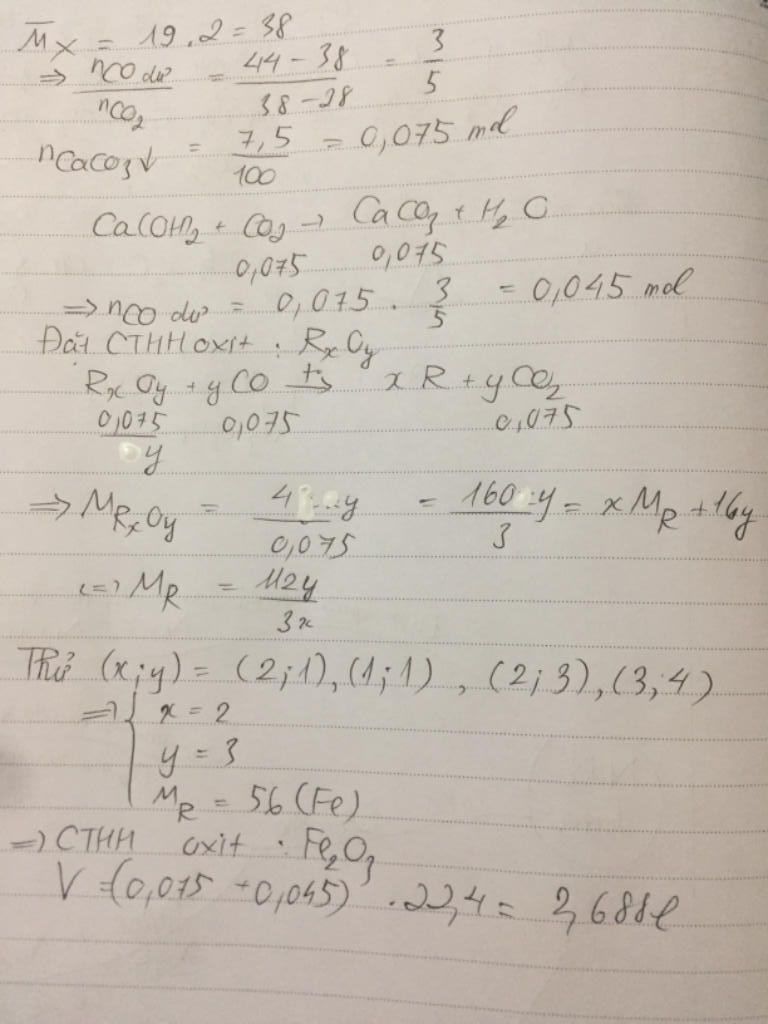 M̅X = 19.2 = 38
⇒ nCO dư / nCO2 = (44 - 38) / (38 - 28) = 3/5
nCaCO3↓ = 7,5/100 = 0,075 mol
Ca(OH)2 + CO2 → CaCO3 + H2O
0,075 0,075
⇒ nCO dư = 0,075 . 3/5 = 0,045 mol
Đặt CTHH oxit : RxOy
RxOy + yCO t°→ x R + yCO2
0,075/y 0,075 0,075
⇒ MRxOy = 4 y / 0,075 = 160 y / 3 = xMR + 16y
⇔ MR = 112y / 3x
Thử (x;y) = (2;1), (1;1), (2;3), (3;4)
⇒ { x = 2
y = 3
MR = 56 (Fe)
⇒ CTHH oxit : Fe2O3
V = (0,075 + 0,045) . 22,4 = 2,688l